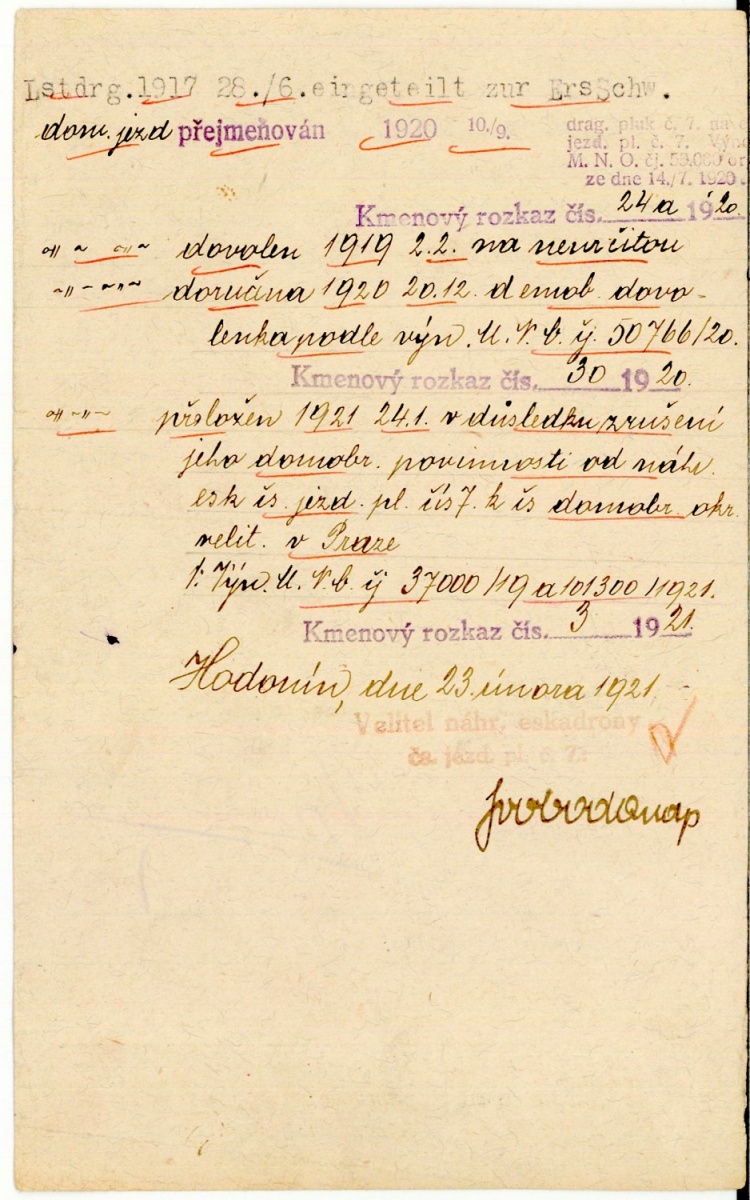 Lstdrg. 1917 28./6. eingeteilt zur ErsSchw.
dom. jezd přejmenován 1920 10./9. drag. pluk č. 7. na
jezd. pl. č. 7. Výn
M. N. O. čj. 50.000 or
ze dne 14./7. 1920
Kmenový rozkaz čís. 24a 1920.
-"- -"- dovolen 1919 2.2. na neurčitou
-"- -"- doručena 1920 20.12. demob. dovo-
lenka podle výn. M. N. O. čj. 50766/20.
Kmenový rozkaz čís. 30 1920.
-"- -"- přeložen 1921 24.1. v důsledku zrušení
jeho domobr. povinnosti od náhr.
esk čs. jezd. pl. čís 7. k čs domobr. okr.
velit. v Praze
/: Výn. M. N. O. čj 37000/19 a 101300/1921.
Kmenový rozkaz čís. 3 1921.
Hodonín, dne 23. února 1921.
Velitel náhr. eskadrony
čs. jezd. pl. č. 7.: